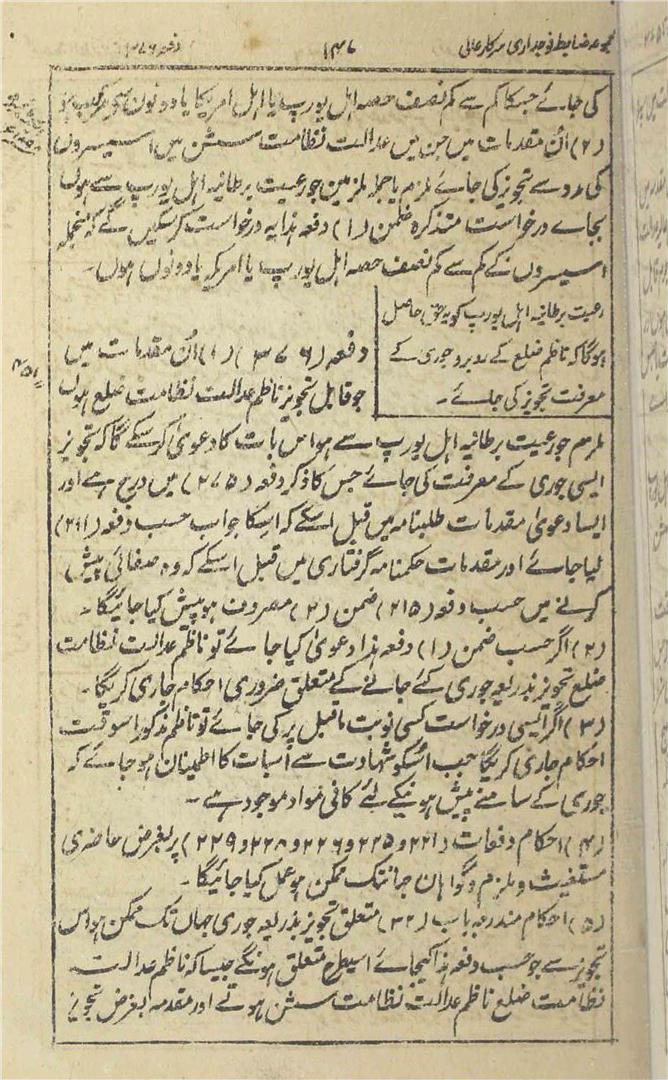 مجموعہ ضابطہ فوجداری سرکار عالی
۱۴۷
دفعہ ۳۷۶
کی جائے جسکا کم سے کم نصف حصہ اہل یورپ یا اہل امریکا یا دونوں سے مرکب ہو
(۲) اُن مقدمات میں جن میں عدالت نظامت سشن میں اسیسروں
کی مدد سے تجویز کی جائے ملزم یا جملہ ملزمین جو رعیت برطانیہ اہل یورپ سے ہوں
بجاے درخواست متذکرہ ضمن (۱) دفعہ ہذا یہ درخواست کر سکیں گے کہ منجملہ
اسیسروں کے کم سے کم نصف حصہ اہل یورپ یا امریکہ یا دونوں ہوں۔
رعیت برطانیہ اہل یورپ کو یہ حق حاصل
ہوگا کہ ناظم ضلع کے روبرو جوری کے
معرفت تجویز کی جائے۔
دفعہ (۳۷۶) (۱) اُن مقدمات میں
جو قابل تجویز ناظم عدالت نظامت ضلع ہوں
ملزم جو رعیت برطانیہ اہل یورپ سے ہو اس بات کا دعویٰ کر سکے گا کہ تجویز
ایسی جوری کے معرفت کی جائے جس کا ذکر دفعہ (۲۷۵) میں درج ہے اور
ایسا دعویٰ مقدمات طلبنامہ میں قبل اسکے کہ اسکا جواب حسب دفعہ (۲۱۱)
لیا جائے اور مقدمات حکمنامہ گرفتاری میں قبل اسکے کہ وہ صفائی پیش
کرنے میں حسب دفعہ (۲۱۵) ضمن (۲) مصروف ہو پیش کیا جائیگا۔
(۲) اگر حسب ضمن (۱) دفعہ ہذا دعویٰ کیا جائے تو ناظم عدالت نظامت
ضلع تجویز بذریعہ جوری کئے جانے کے متعلق ضروری احکام جاری کریگا۔
(۳) اگر ایسی درخواست کسی نوبت ماقبل پر کی جائے تو ناظم مذکور اسوقت
احکام جاری کریگا جب اُسکو شہادت سے اُسبات کا اطمینان ہو جائے کہ
جوری کے سامنے پیش ہونیکے لئے کافی مواد موجود ہے۔
(۴) احکام دفعات (۲۲۱ و ۲۲۵ و ۲۲۶ و ۲۲۸ و ۲۲۹) پر بغرض حاضری
مستغیث و ملزم و گواہان جہانتک ممکن ہو عمل کیا جائیگا۔
(۵) احکام مندرجہ باب (۳۲) متعلق تجویز بذریعہ جوری جہاں تک ممکن ہو اس
تجویز سے جو حسب دفعہ ہذا کیجائے اسیطرح متعلق ہونگے جیسا کہ ناظم عدالت
نظامت ضلع ناظم عدالت نظامت سشن ہوتے اور مقدمہ بغرض تجویز